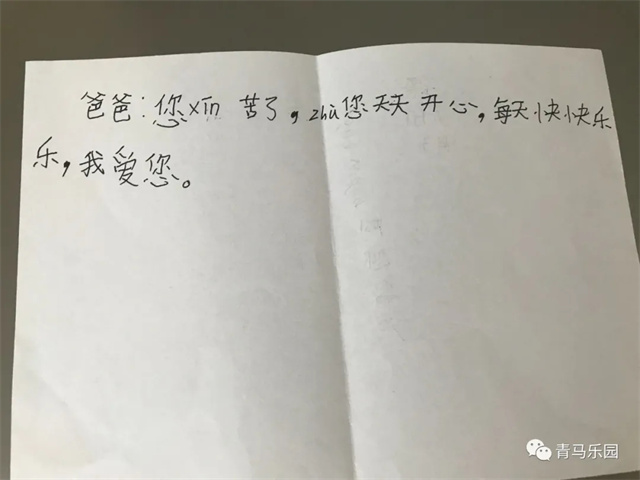 爸爸:您xīn 苦了,zhù您天天开心,每天快快乐
乐,我爱您。
青马乐园